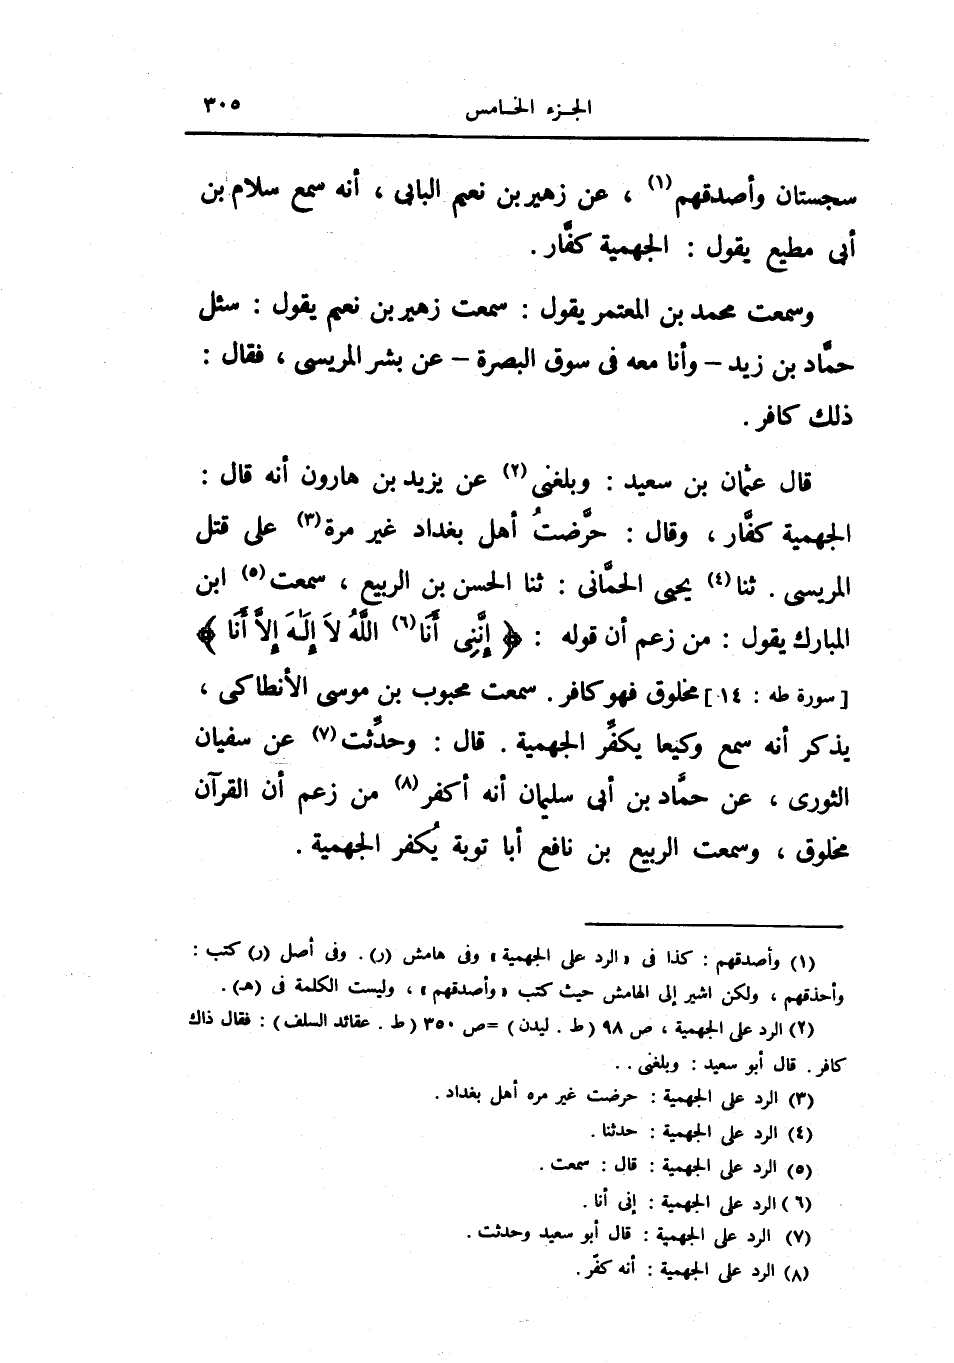 الجزء الخامس
٣٠٥
سجستان وأصدقهم(١) ، عن زهير بن نعيم البابى ، أنه سمع سلام بن
أبى مطيع يقول : الجهمية كفَّار .
وسمعت محمد بن المعتمر يقول : سمعت زهير بن نعيم يقول : سئل
حمَّاد بن زيد – وأنا معه فى سوق البصرة – عن بشر المريسى ، فقال :
ذلك كافر .
قال عثمان بن سعيد : وبلغنى(٢) عن يزيد بن هارون أنه قال :
الجهمية كفَّار ، وقال : حرَّضتُ أهل بغداد غير مرة(٣) على قتل
المريسى . ثنا(٤) يحيى الحمَّانى : ثنا الحسن بن الربيع ، سمعت(٥) ابن
المبارك يقول : من زعم أن قوله : ﴿ إِنَّنِى أَنَا(٦) اللَّهُ لاَ إِلَـٰهَ إِلاَّ أَنَا ﴾
[ سورة طه : ١٤ ] مخلوق فهو كافر . سمعت محبوب بن موسى الأنطاكى ،
يذكر أنه سمع وكيعا يكفِّر الجهمية . قال : وحدِّثت(٧) عن سفيان
الثورى ، عن حمَّاد بن أبى سليمان أنه أكفر(٨) من زعم أن القرآن
مخلوق ، وسمعت الربيع بن نافع أبا توبة يُكفر الجهمية .
(١) وأصدقهم : كذا فى « الرد على الجهمية » وفى هامش (ر) . وفى أصل (ر) كتب :
وأحذقهم ، ولكن اشير إلى الهامش حيث كتب « وأصدقهم » ، وليست الكلمة فى (هـ) .
(٢) الرد على الجهمية ، ص ٩٨ ( ط . ليدن ) =ص ٣٥٠ ( ط . عقائد السلف ) : فقال ذاك
كافر . قال أبو سعيد : وبلغنى . .
(٣) الرد على الجهمية : حرضت غير مره أهل بغداد .
(٤) الرد على الجهمية : حدثنا .
(٥) الرد على الجهمية : قال : سمعت .
(٦) الرد على الجهمية : إنى أنا .
(٧) الرد على الجهمية : قال أبو سعيد وحدثت .
(٨) الرد على الجهمية : أنه كفّر .